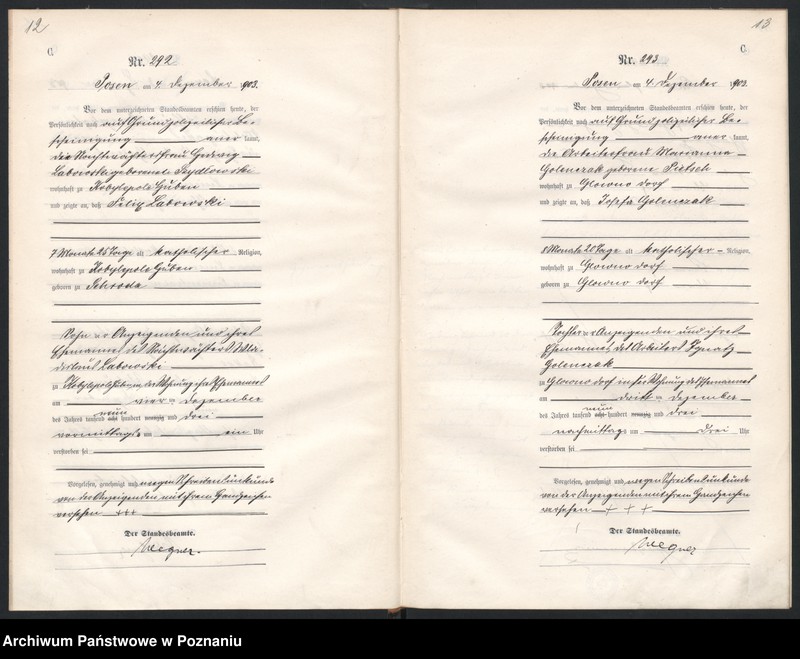 12
C.
Nr. 292
Posen am 4 Dezember 1903.
Vor dem unterzeichneten Standesbeamten erschien heute, der
Persönlichkeit nach auf Grund polizeilicher Be-
scheinigung aner kannt,
die Nachtwächtersfrau Hedwig
Labowska geborene Szydlowski
wohnhaft zu Kobylepole Huben
und zeigte an, daß Felix Labowski
7 Monate 25 Tage alt katholischer Religion,
wohnhaft zu Kobylepole Huben
geboren zu Schroda
Sohn der Anzeigenden und ihres
Ehemannes des Nachtwächters Wla-
dislaus Labowski
zu Kobylepole Huben in der Wohnung ihres Ehemannes
am vier ten Dezember
des Jahres tausend acht neun hundert neunzig und drei
vormittags um ein Uhr
verstorben sei
Vorgelesen, genehmigt und wegen Schreibensunkunde
von der Anzeigenden mit ihrem Handzeichen
versehen +++
Der Standesbeamte.
Wegner.
13
C.
Nr. 293
Posen am 4 Dezember 1903.
Vor dem unterzeichneten Standesbeamten erschien heute, der
Persönlichkeit nach auf Grund polizeilicher Be-
scheinigung aner kannt,
die Arbeiterfrau Marianna
Golenczak geborene Pietsch
wohnhaft zu Glowno Dorf
und zeigte an, daß Josefa Golenczak
8 Monate 20 Tage alt katholischer Religion,
wohnhaft zu Glowno Dorf
geboren zu Glowno Dorf
Tochter der Anzeigenden und ihres
Ehemannes des Arbeiters Ignatz
Golenczak
zu Glowno Dorf in der Wohnung des Ehemannes
am dritt en Dezember
des Jahres tausend acht neun hundert neunzig und drei
nachmittags um drei Uhr
verstorben sei
Vorgelesen, genehmigt und wegen Schreibensunkunde
von der Anzeigenden mit ihrem Handzeichen
versehen + + +
Der Standesbeamte.
Wegner
Archiwum Państwowe w Poznaniu